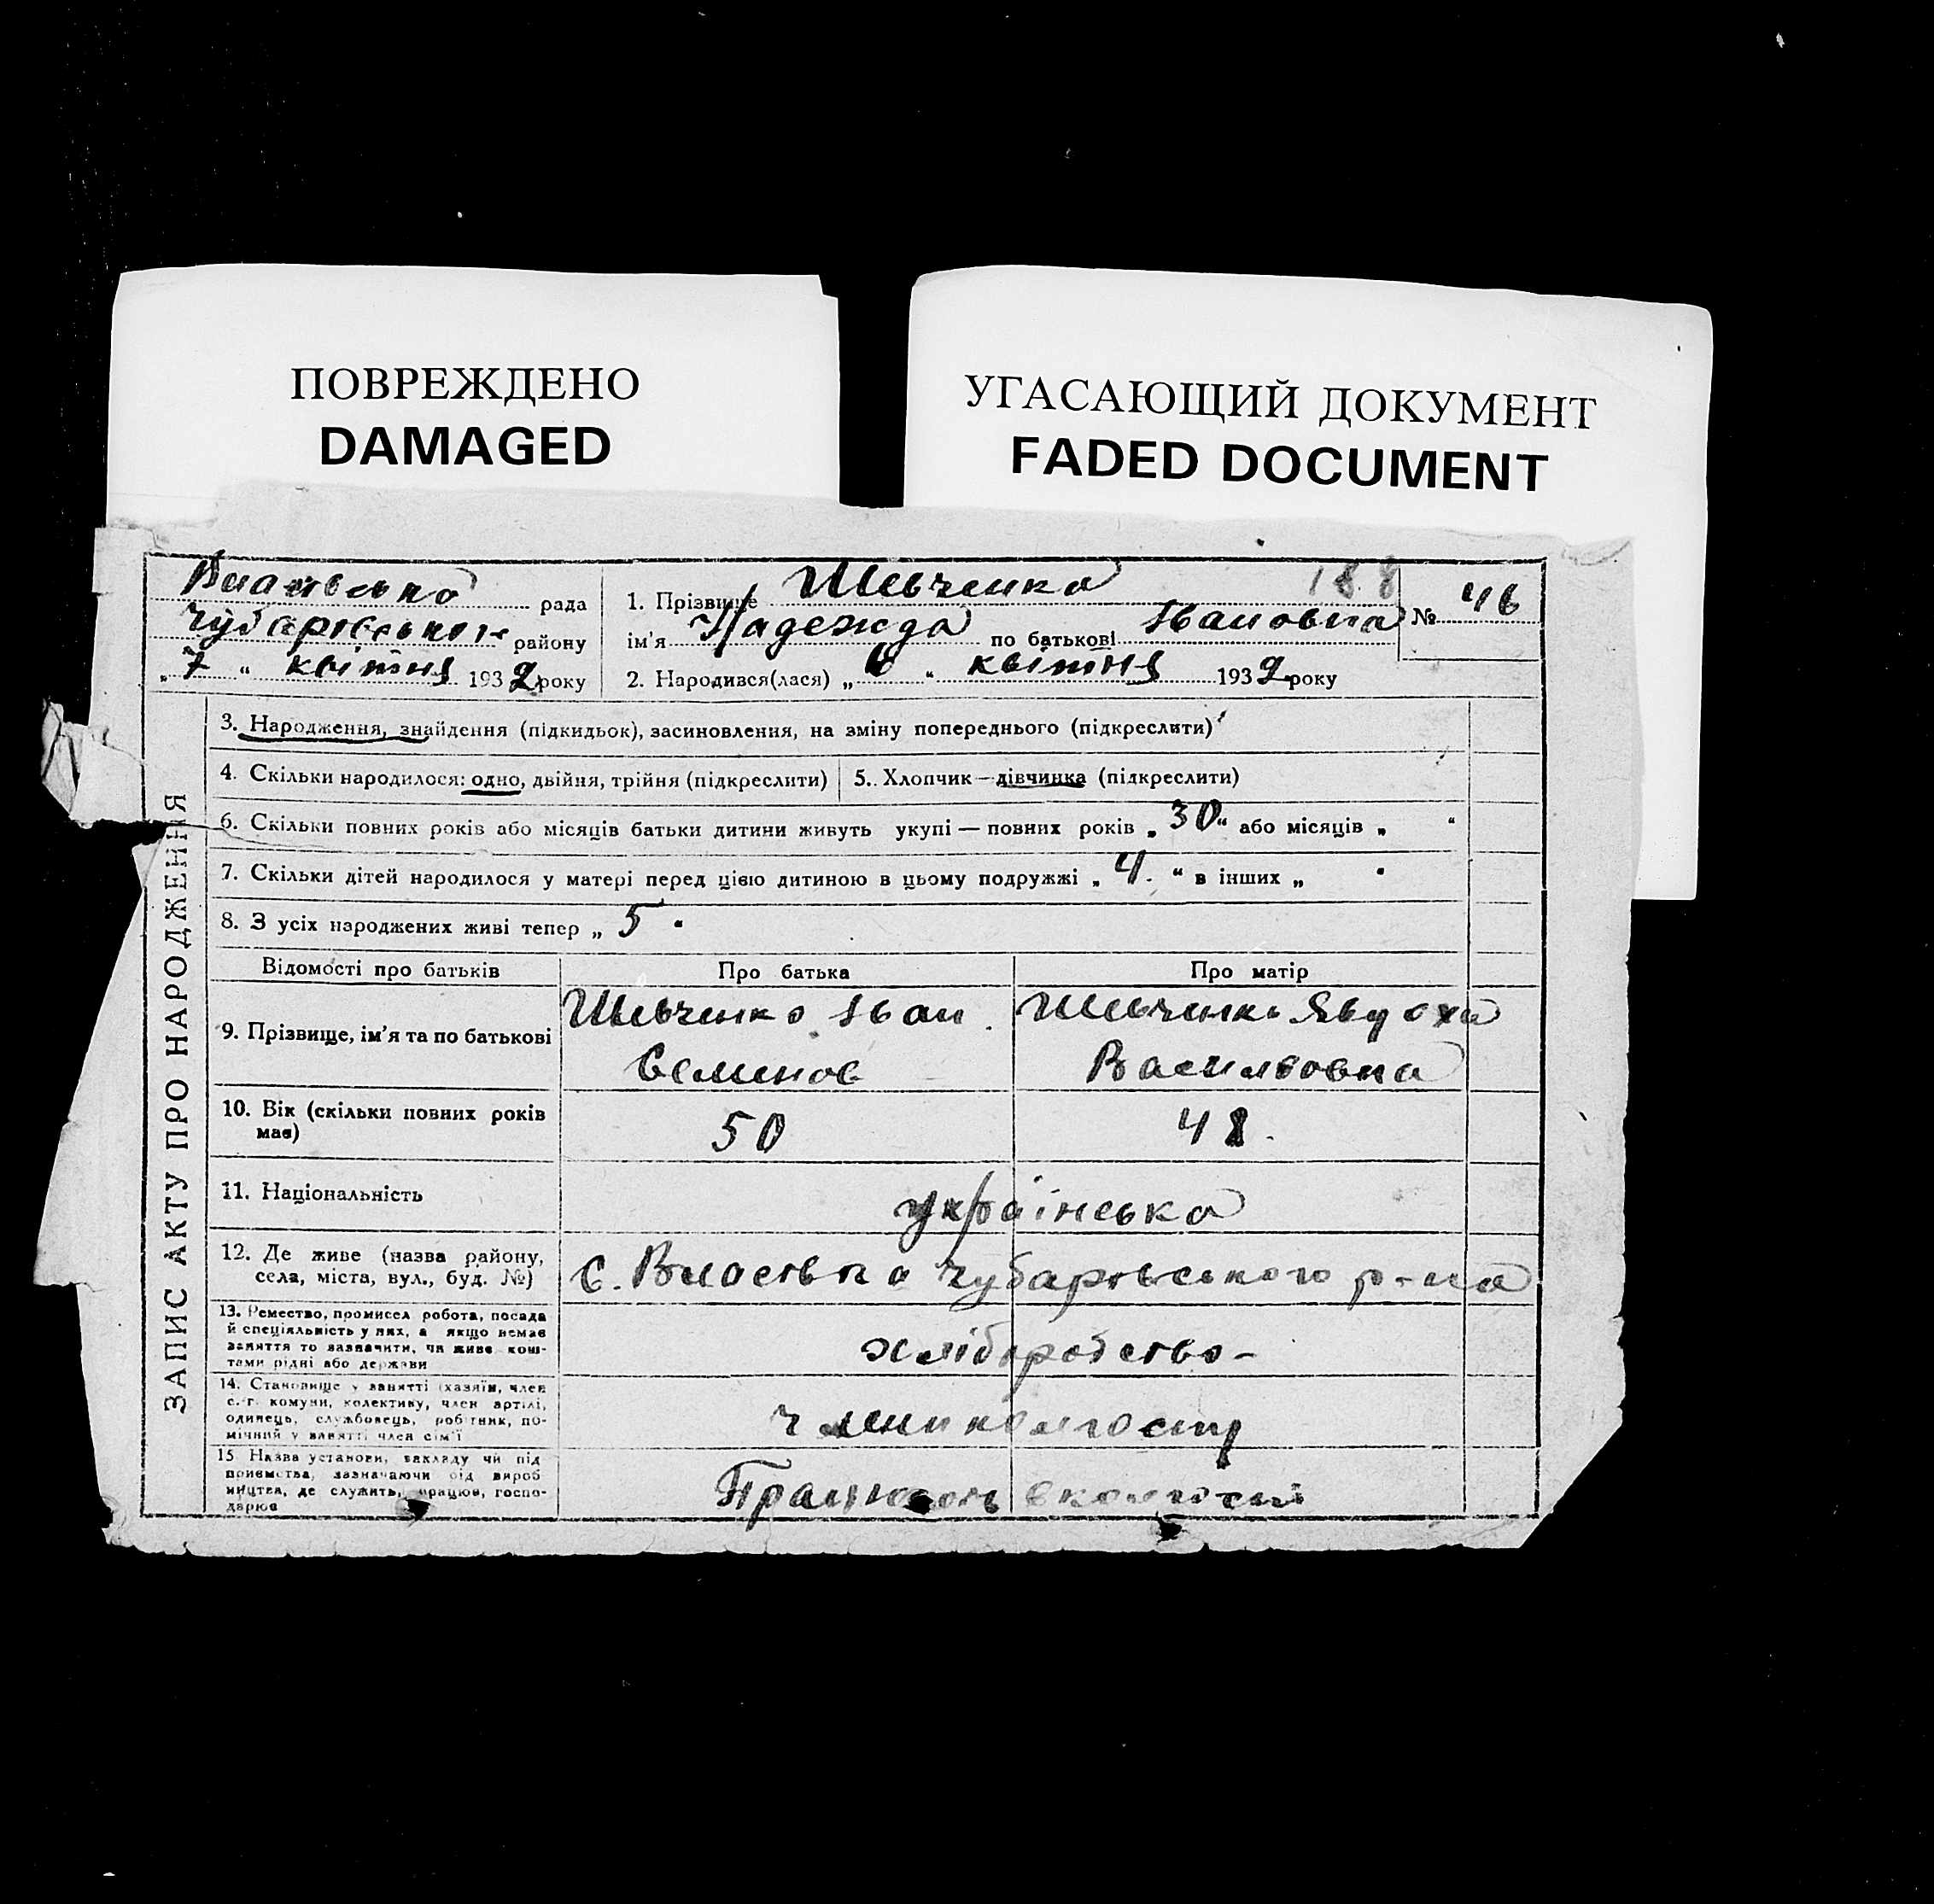 ПОВРЕЖДЕНО
DAMAGED
УГАСАЮЩИЙ ДОКУМЕНТ
FADED DOCUMENT
рада
Чубарівського району
„ 7 “ квітня 1932 року
1. Прізвище Шевченко 188
ім'я Надежда по батькові Івановна
№ 46
2. Народився(лася) „ 6 “ квітня 1932 року
ЗАПИС АКТУ ПРО НАРОДЖЕННЯ
3. Народження, знайдення (підкидьок), засиновлення, на зміну попереднього (підкреслити)
4. Скільки народилося: одно, двійня, трійня (підкреслити) 5. Хлопчик—дівчинка (підкреслити)
6. Скільки повних років або місяців батьки дитини живуть укупі — повних років „ 30 “ або місяців „ “
7. Скільки дітей народилося у матері перед цією дитиною в цьому подружжі „ 4. “ в інших „ “
8. З усіх народжених живі тепер „ 5 “
Відомості про батьків Про батька Про матір
9. Прізвище, ім'я та по батькові
Шевченко Іван
Семенов
Шевченко Явдоха
Васильовна
10. Вік (скільки повних років
має)
50 48.
11. Національність українська
12. Де живе (назва району,
села, міста, вул., буд. №)
с. Чубарівського р-на
13. Ремество, промисел робота, посада
й спеціяльність у них, а якщо немає
заняття то зазначити, чи живе кош-
тами рідні або держави
хліборобство-
14. Становище у занятті (хазяїн, член
с.-г. комуни, колективу, член артілі,
одинець, службовець, робітник, по-
мічний у занятті член сім'ї
члени колгоспу
15 Назва установи, закладу чи під
приємства, зазначаючи від вироб
ництва, де служить, працює, госпо-
дарює
Працюють в колгоспі